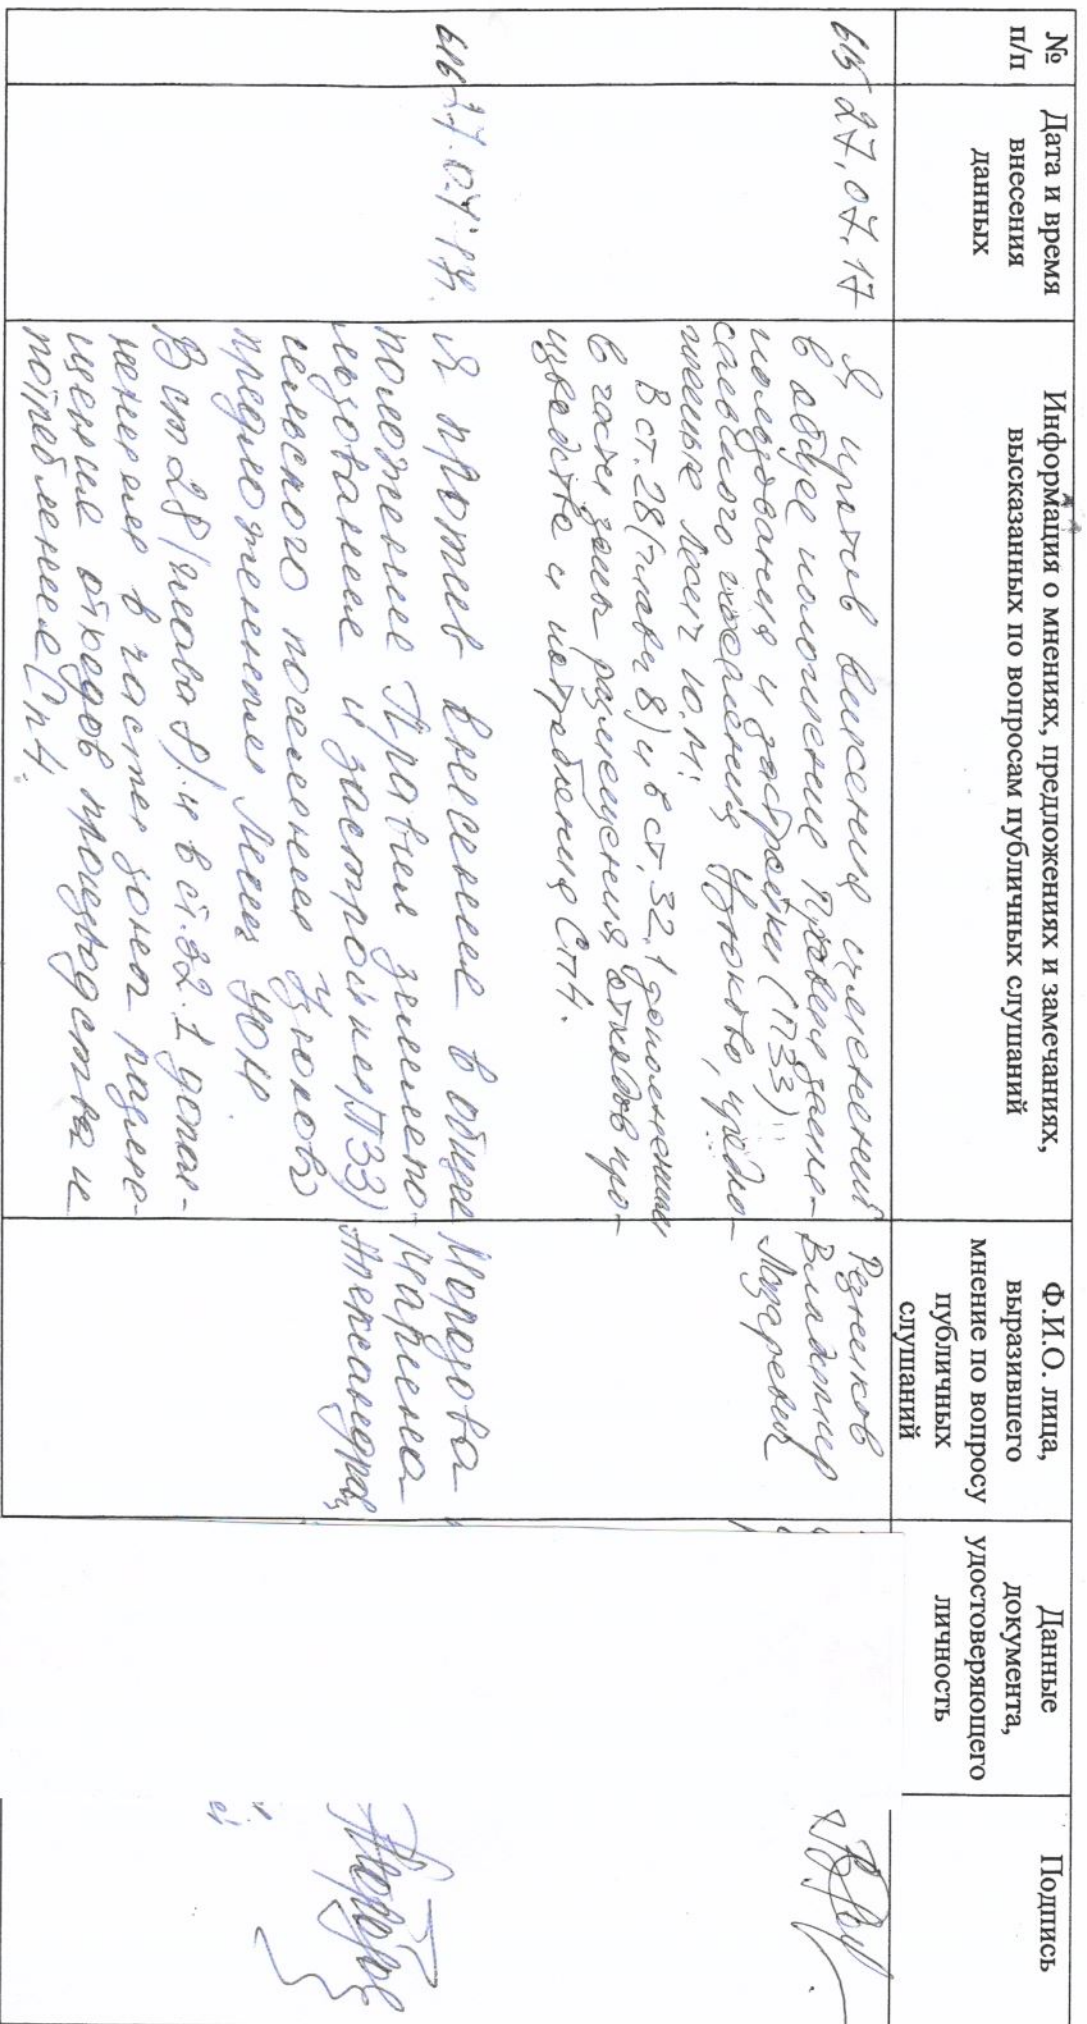 №
п/п
Дата и время
внесения
данных
Информация о мнениях, предложениях и замечаниях,
высказанных по вопросам публичных слушаний
Ф.И.О. лица,
выразившего
мнение по вопросу
публичных
слушаний
Данные
документа,
удостоверяющего
личность
Подпись
615
27.07.17
Я против внесения изменений
в общее положение Правил земле-
пользования и застройки (ПЗЗ)
сельского поселения Узюково, предло-
жение Лосеч Ю.М.
В ст. 28 (глава 8) и в ст. 32.1 дополнения
в части зоны размещения отходов про-
изводства и потребления СП4.
Резников
Владимир
Лазаревич
616
27.07.17г.
Я против внесения в общее
положение Правил землепо-
льзование и застройки (ПЗЗ)
сельского поселения Узюково
предложения ЮМ
В ст 28 /глава 8/ и в ст. 32.1 допол-
нения в части зоны разме-
щения отходов производства и
потребления Сп4.
Морозова
Марина